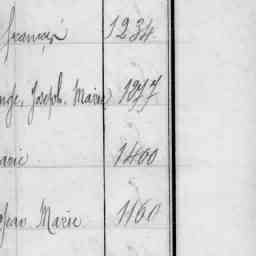 français 1234
Joseph, Marie 1077
Marie 1400
Jean Marie 1160